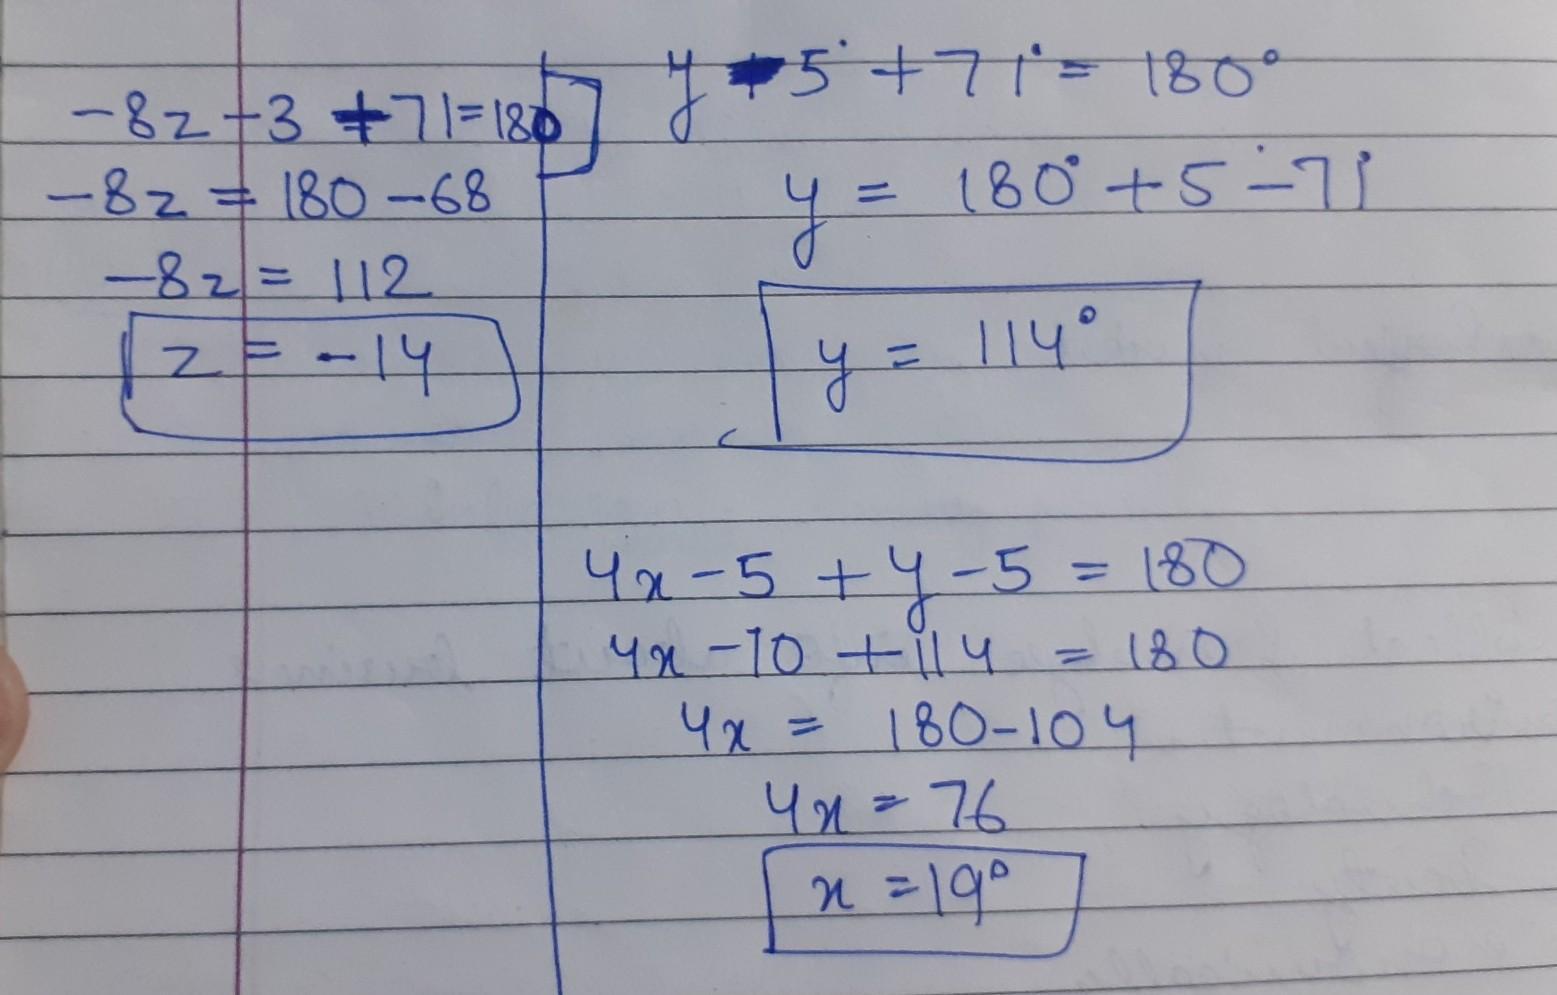 -8z-3 +71=180
-8z = 180-68
-8z = 112
z = -14
y -5° +71° = 180°
y = 180° +5° -71°
y = 114°
4x-5 +y-5 = 180
4x-10 +114 = 180
4x = 180-104
4x = 76
x = 19°